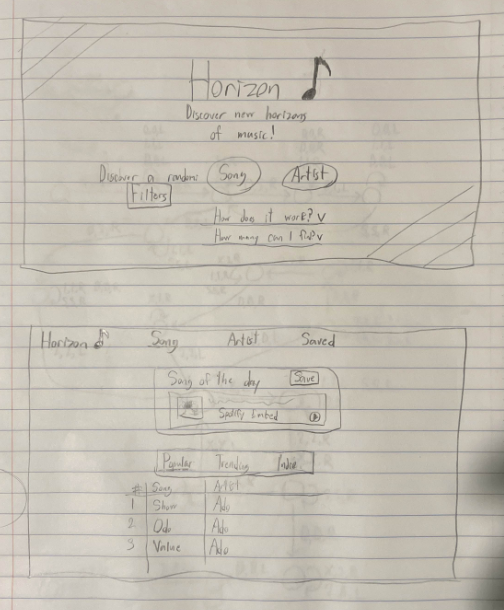 Horizon
Discover new horizons
of music!
Discover a random: Song Artist
Filters
How does it work? v
How many can I find? v
Horizon Song Artist Saved
Song of the day Save
Spotify Embed
Popular Trending Indie
# Song Artist
1 Show Ado
2 Odo Ado
3 Value Ado